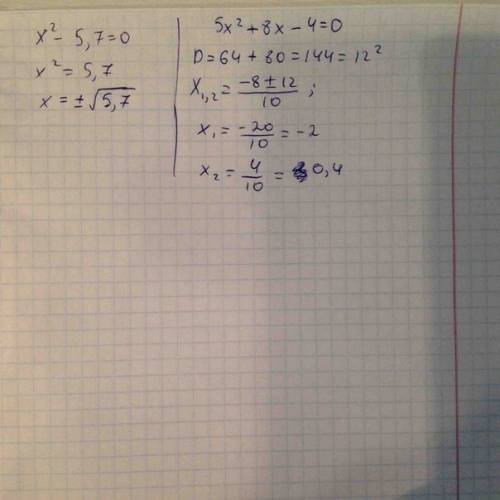 x² - 5,7 = 0
x² = 5,7
x = ±√5,7
5x² + 8x - 4 = 0
D = 64 + 80 = 144 = 12²
X₁,₂ = (-8 ± 12)/10 ;
x₁ = -20/10 = -2
x₂ = 4/10 = 0,4